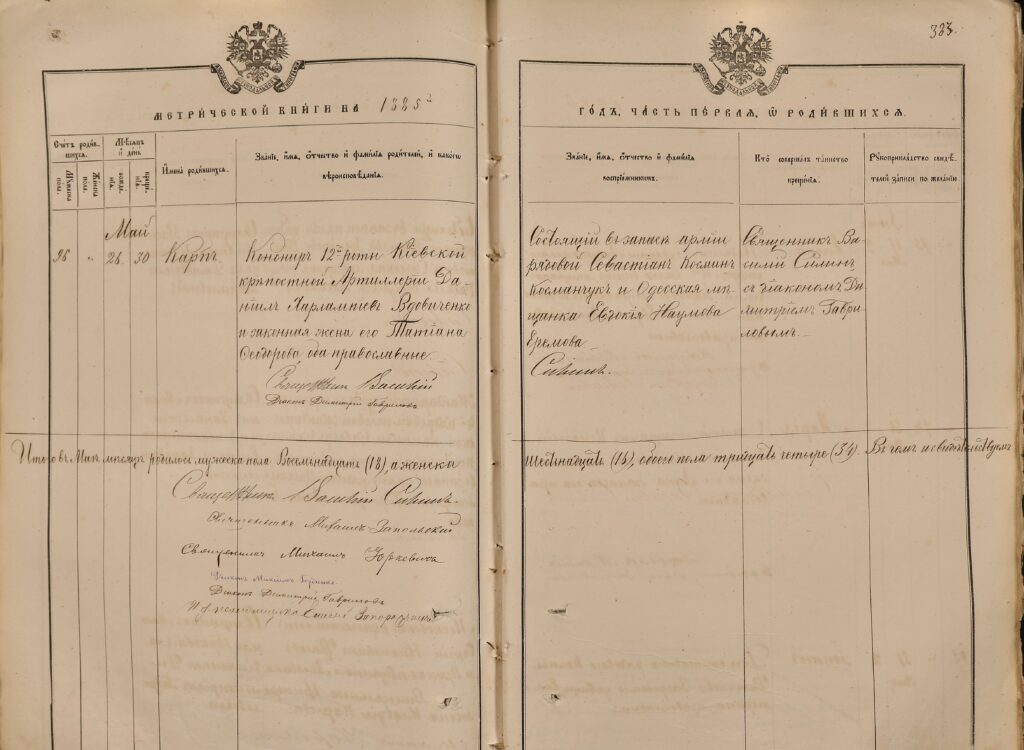 333.
МЕТРИ́ЧЕСКОЙ КНИ́ГИ НА 1885 й
ГО́ДЪ, ЧАСТЬ ПЕ́РВАЯ, Ѿ РОДИ́ВШИХСЯ.
Счетъ роди́вшихся.
Мѣсяцъ и день
Имена родившихся.
Званіе, имя, отчество и фамилія родителей, и какого вѣроисповѣданія.
Званіе, имя, отчество и фамилія воспріемниковъ.
Кто совершалъ таинство крещенія.
Рукоприкладство свидѣтелей записи по желанію.
Мужеска пола.
Женска пола.
рожденія.
крещенія.
Май
96 „ 26. 30 Карпъ
Канониръ 12й роты Кіевской
крѣпостной Артиллеріи Да-
ніилъ Харлампіевъ Вдовиченко
и законная жена его Татіана
Ѳеодорова, оба православные.
Священникъ Василій
Діаконъ Димитрій Гавриловъ
Состоящій въ запасѣ арміи
рядовой Севастіанъ Косминъ
Косманчукъ и Одесская мѣ-
щанка Евдокія Наумова
Еремова
Силинъ.
Священникъ Ва-
силій Силинъ
съ діакономъ Ди-
митріемъ Гаври-
ловымъ.
Итого въ Маѣ мѣсяцѣ родилось мужеска пола Восемьнадцать (18), а женска
Шестьнадцать (16), обоего пола тридцать четыре (34). Въ чемъ и свидѣтельствуемъ
Священникъ Василій Силинъ.
Священникъ Запольскій
Священникъ Михаилъ Юркевичъ
Діаконъ Димитрій Гавриловъ